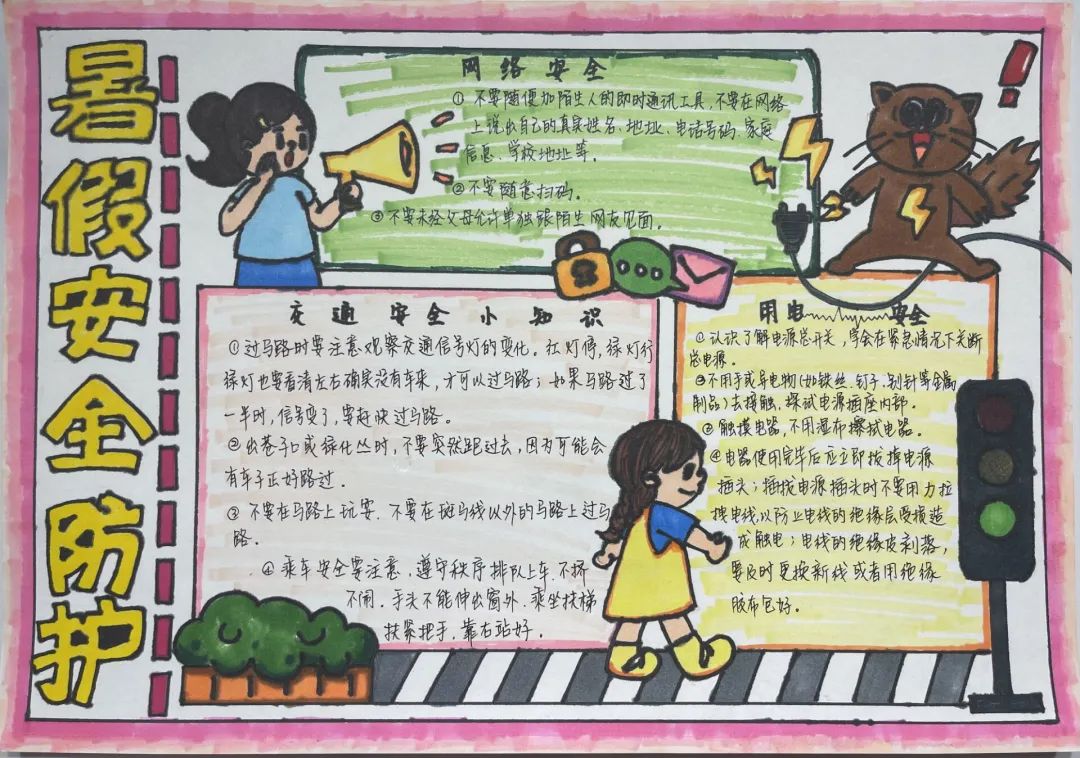 暑假安全防护
网络安全
① 不要随便加陌生人的即时通讯工具,不要在网络
上说出自己的真实姓名、地址、电话号码、家庭
信息、学校地址等。
② 不要随意扫码。
③ 不要未经父母允许单独跟陌生网友见面。
交通安全小知识
① 过马路时要注意观察交通信号灯的变化。红灯停,绿灯行
绿灯也要看清左右确实没有车来,才可以过马路;如果马路过了
一半时,信号变了,要赶快过马路。
② 出巷子口或绿化丛时,不要突然跑过去,因为可能会
有车子正好路过.
③ 不要在马路上玩耍.不要在斑马线以外的马路上过马
路.
④ 乘车安全要注意,遵守秩序排队上车.不挤
不闹.手头不能伸出窗外.乘坐扶梯
扶紧把手.靠右站好.
用电安全
① 认识了解电源总开关,学会在紧急情况下关断
总电源。
② 不用手或导电物(如铁丝.钉子.别针等金属
制品)去接触,探试电源插座内部.
③ 触摸电器,不用湿布擦拭电器.
④ 电器使用完毕后应立即拔掉电源
插头;插拔电源插头时不要用力拉
拽电线,以防止电线的绝缘层受损造
成触电;电线的绝缘皮剥落,
要及时更换新线或者用绝缘
胶布包好.